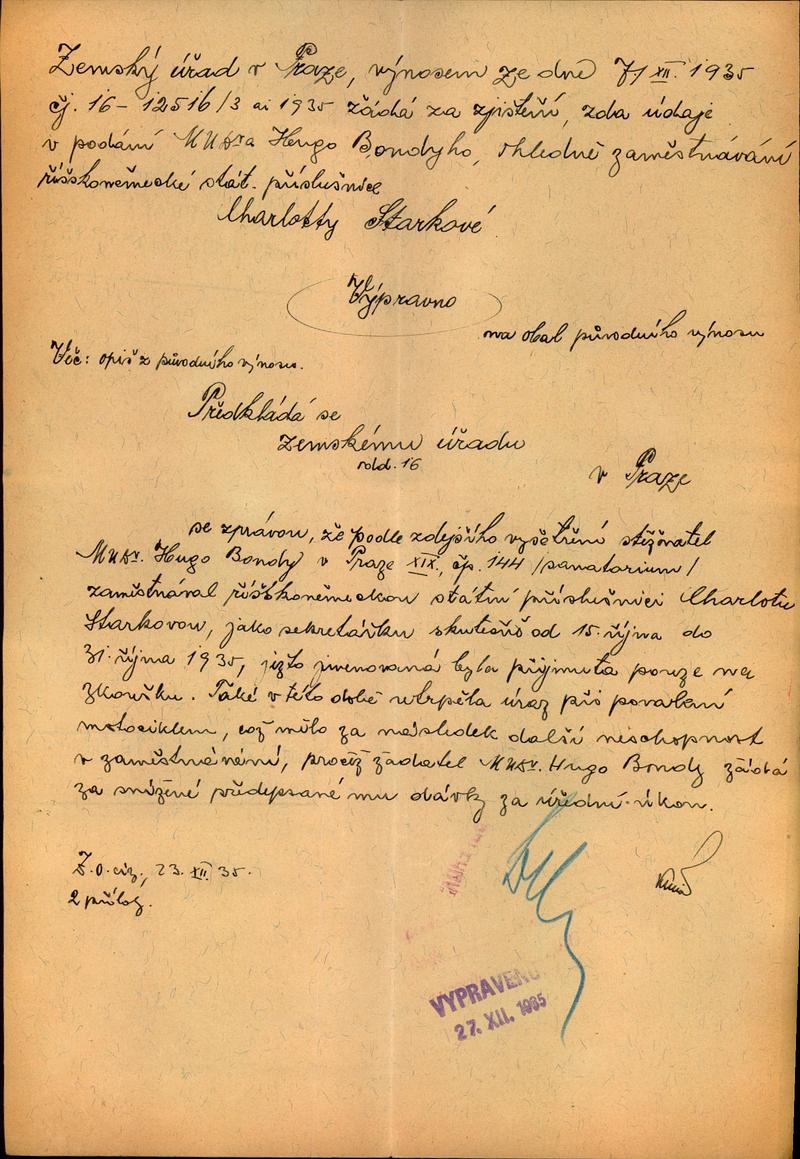 Zemský úřad v Praze, výnosem ze dne 7/XII. 1935
čj. 16-12516/3 ai 1935 žádá za zjištění, zda údaje
v podání MUDra Hugo Bondyho, ohledně zaměstnávání
říšskoněmecké stát. příslušnice
Charlotty Starkové
Výpravno
na obal původního výnosu
Věc: opiš z původního výnosu.
Předkládá se
zemskému úřadu
odd. 16
v Praze
se zprávou, že podle zdejšího vyšetření stěžovatel
MUDr. Hugo Bondy v Praze XIX., čp. 144 /sanatorium/
zaměstnával říšskoněmeckou státní příslušnici Charlotu
Starkovou, jako sekretářku skutečně od 15. října do
31. října 1935, jižto jmenovaná byla přijmuta pouze na
zkoušku. Také v této době utrpěla úraz při povalení
motociklem, což mělo za následek další neschopnost
v zaměstnávání, pročež žadatel MUDr. Hugo Bondy žádá
za snížené předepsané mu dávky za úřední úkon.
Z.o. ciz., 23. XII. 35.
2 přílohy.
VYPRAVENO
27. XII. 1935